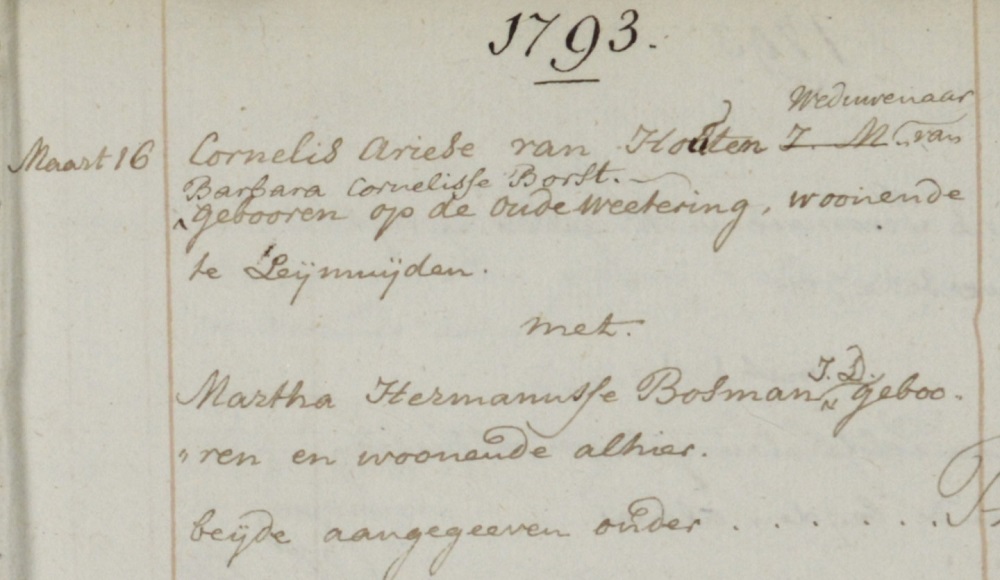 1793.
Weduwenaar
Maart 16 Cornelis Ariese van Houten J. M. van
Barbara Cornelisse Borst.
Gebooren op de oude weetering, woonende
te Leijmuijden.
met.
J. D.
Martha Hermanusse Bosman geboo-
"ren en woonende alhier.
beijde aangegeeven onder . . . . . . .